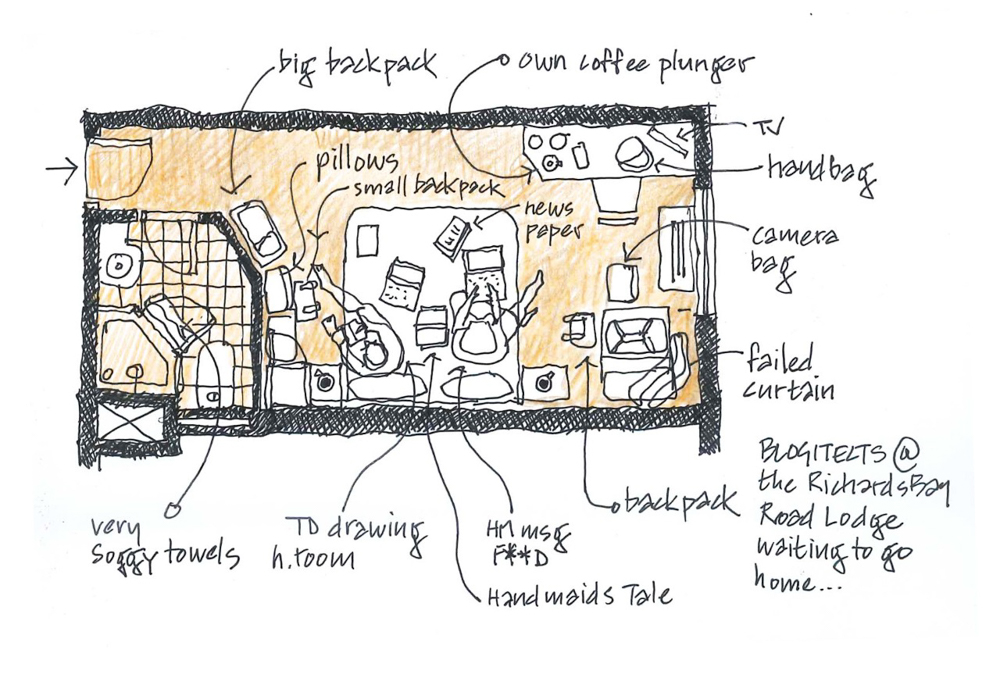 big backpack
own coffee plunger
TV
pillows
small backpack
handbag
news
paper
camera
bag
failed
curtain
BLOGITECTS @
the Richards Bay
Road Lodge
waiting to go
home...
backpack
very
soggy towels
TD drawing
h.room
HM msg
F**D
Handmaids Tale